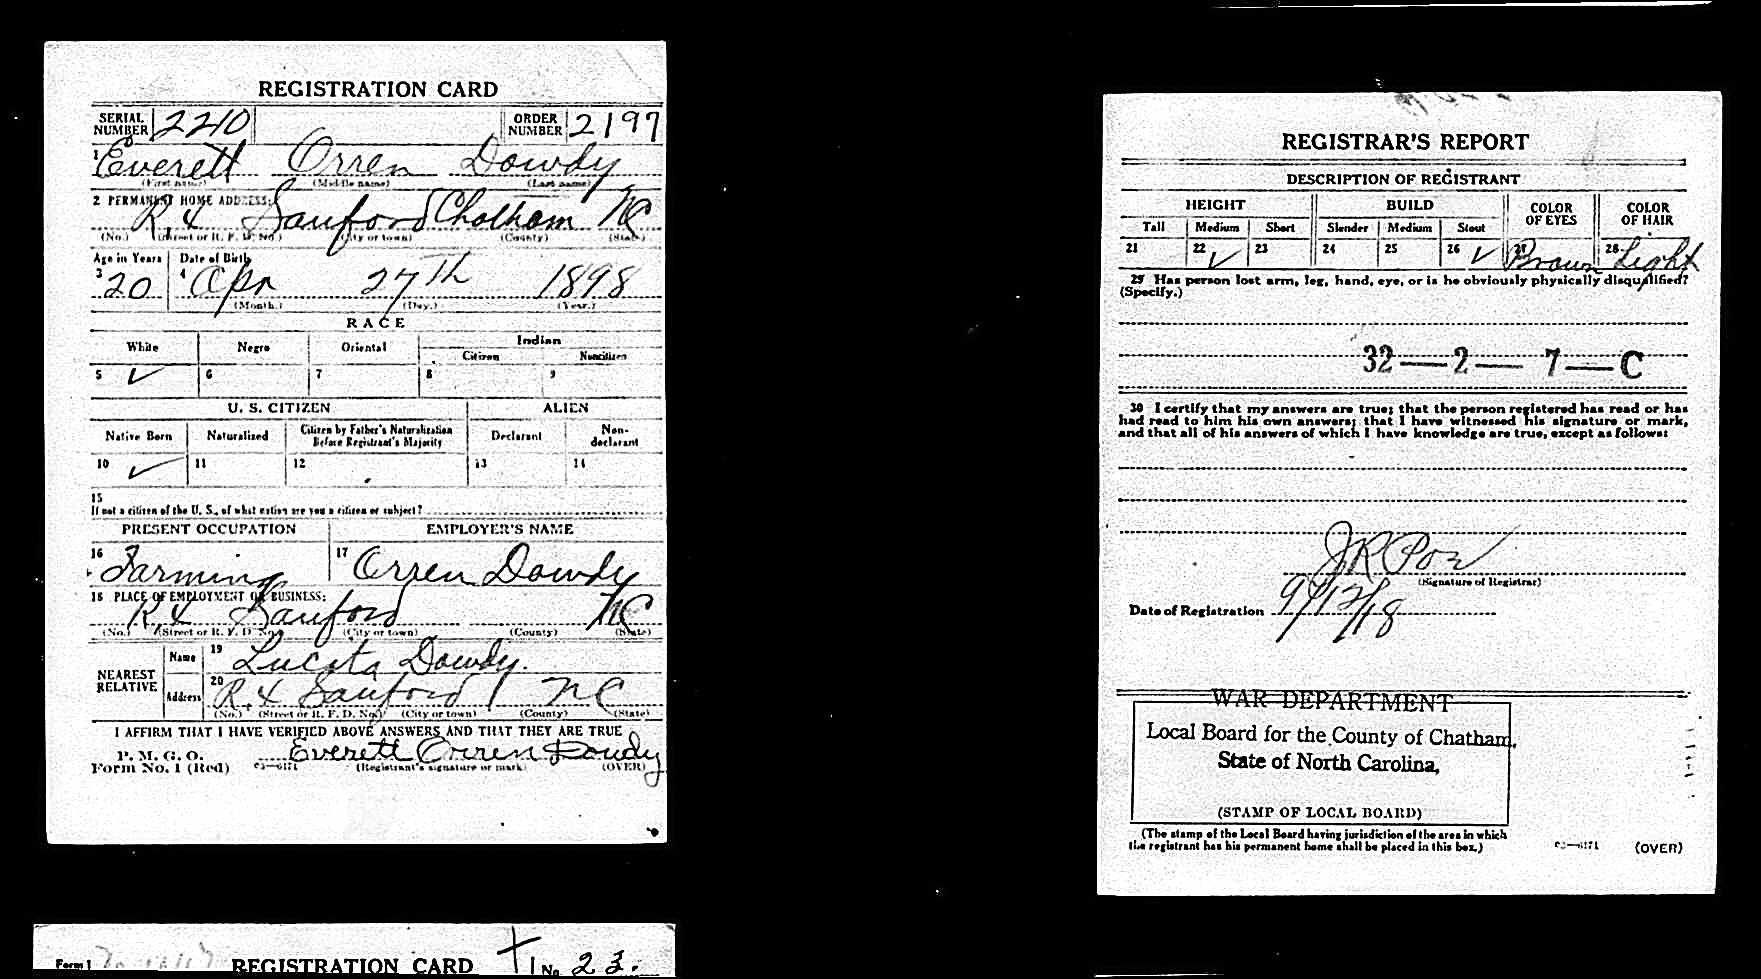 REGISTRATION CARD
SERIAL NUMBER 2210 ORDER NUMBER 2197
1 Everett Orren Dowdy
(First name) (Middle name) (Last name)
2 PERMANENT HOME ADDRESS:
R. 4 Sanford Chatham NC
(No.) (Street or R. F. D. No.) (City or town) (County) (State)
Age in Years Date of Birth
3 20 4 Apr 27th 1898
(Month.) (Day.) (Year.)
RACE
White Negro Oriental Indian
Citizen Noncitizen
5 ✓ 6 7 8 9
U. S. CITIZEN ALIEN
Native Born Naturalized Citizen by Father's Naturalization Before Registrant's Majority Declarant Non-declarant
10 ✓ 11 12 13 14
15
If not a citizen of the U. S., of what nation are you a citizen or subject?
PRESENT OCCUPATION EMPLOYER'S NAME
16 Farming 17 Orren Dowdy
18 PLACE OF EMPLOYMENT OR BUSINESS:
R. 4 Sanford NC
(No.) (Street or R. F. D. No.) (City or town) (County) (State)
NEAREST RELATIVE Name 19 Lucata Dowdy.
Address 20 R. 4 Sanford NC
(No.) (Street or R. F. D. No.) (City or town) (County) (State)
I AFFIRM THAT I HAVE VERIFIED ABOVE ANSWERS AND THAT THEY ARE TRUE
P. M. G. O.
Form No. 1 (Red) Everett Orren Dowdy
(Registrant's signature or mark) (OVER)
Form 1 REGISTRATION CARD No. 23.
REGISTRAR'S REPORT
DESCRIPTION OF REGISTRANT
HEIGHT BUILD COLOR OF EYES COLOR OF HAIR
Tall Medium Short Slender Medium Stout
21 22 ✓ 23 24 25 26 ✓ 27 Brown 28 Light
29 Has person lost arm, leg, hand, eye, or is he obviously physically disqualified?
(Specify.)
32—2—7—C
30 I certify that my answers are true; that the person registered has read or has
had read to him his own answers; that I have witnessed his signature or mark,
and that all of his answers of which I have knowledge are true, except as follows:
J R Poe
(Signature of Registrar)
Date of Registration 9/12/18
WAR DEPARTMENT
Local Board for the County of Chatham,
State of North Carolina,
(STAMP OF LOCAL BOARD)
(The stamp of the Local Board having jurisdiction of the area in which
the registrant has his permanent home shall be placed in this box.)
(OVER)